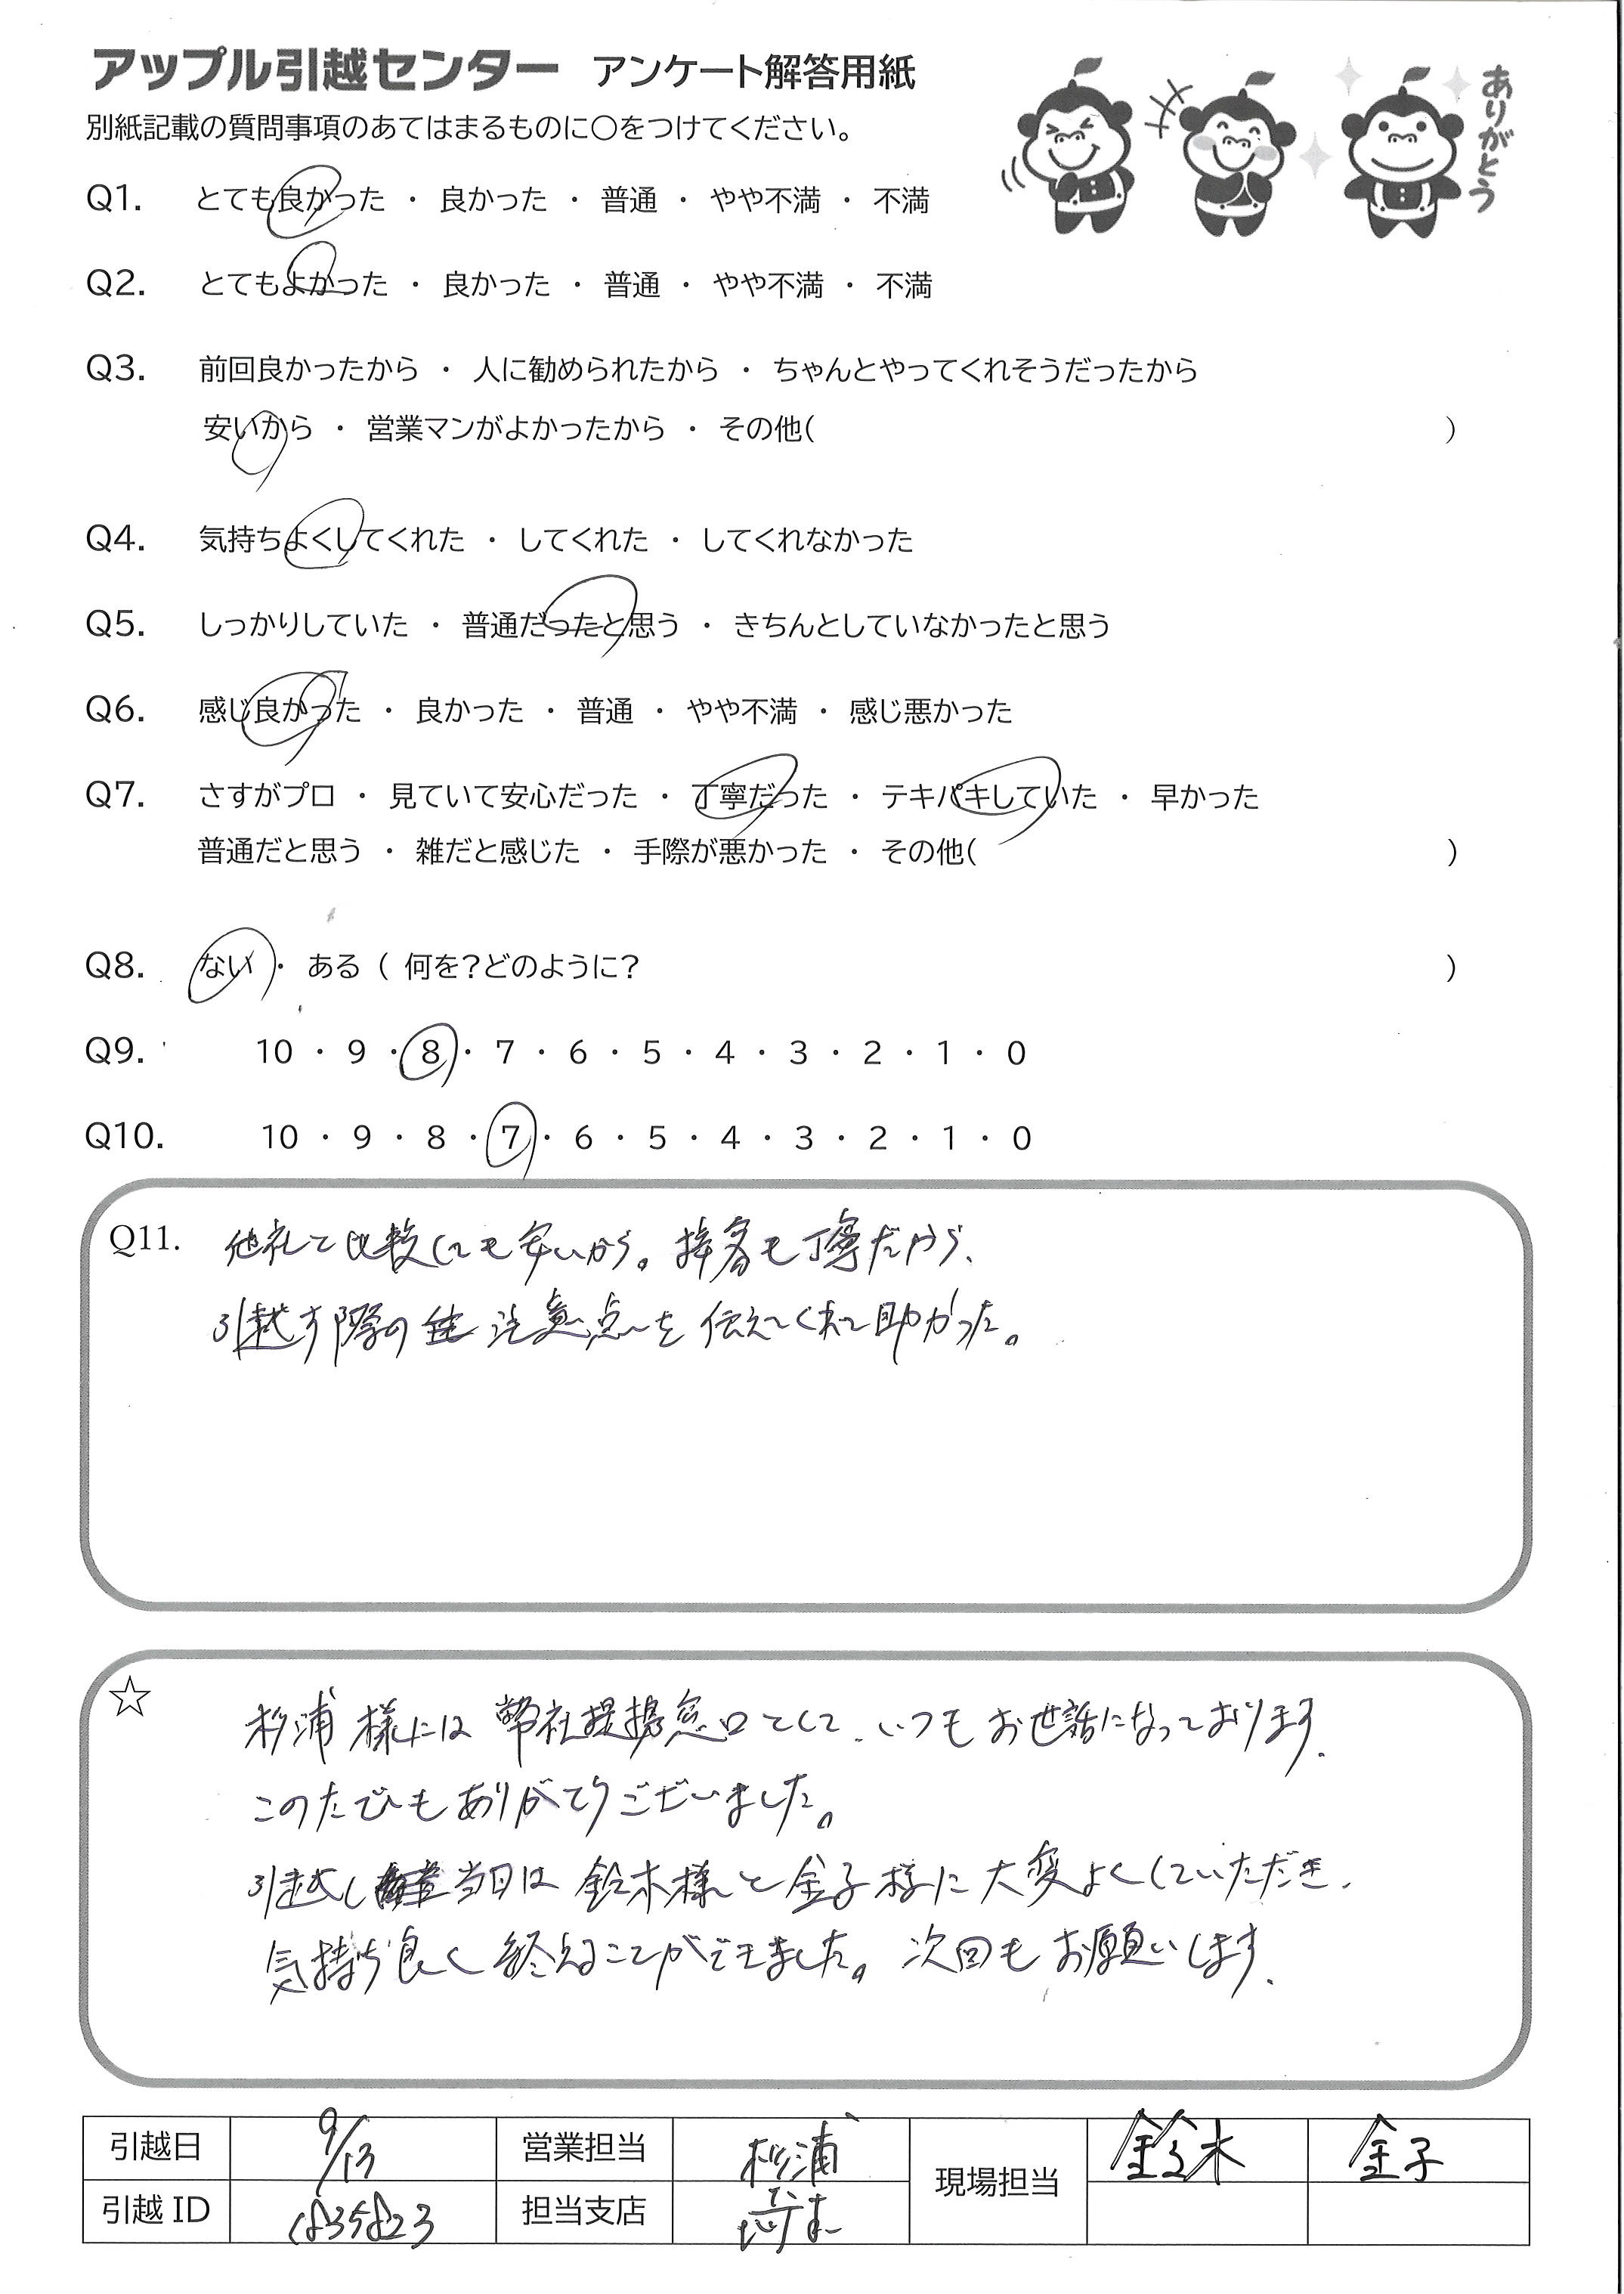 アップル引越センター アンケート解答用紙
ありがとう
別紙記載の質問事項のあてはまるものに○をつけてください。
Q1. とても良かった ・ 良かった ・ 普通 ・ やや不満 ・ 不満
Q2. とてもよかった ・ 良かった ・ 普通 ・ やや不満 ・ 不満
Q3. 前回良かったから ・ 人に勧められたから ・ ちゃんとやってくれそうだったから
安いから ・ 営業マンがよかったから ・ その他( )
Q4. 気持ちよくしてくれた ・ してくれた ・ してくれなかった
Q5. しっかりしていた ・ 普通だったと思う ・ きちんとしていなかったと思う
Q6. 感じ良かった ・ 良かった ・ 普通 ・ やや不満 ・ 感じ悪かった
Q7. さすがプロ ・ 見ていて安心だった ・ 丁寧だった ・ テキパキしていた ・ 早かった
普通だと思う ・ 雑だと感じた ・ 手際が悪かった ・ その他( )
Q8. ない ・ ある ( 何を?どのように? )
Q9. 10 ・ 9 ・ 8 ・ 7 ・ 6 ・ 5 ・ 4 ・ 3 ・ 2 ・ 1 ・ 0
Q10. 10 ・ 9 ・ 8 ・ 7 ・ 6 ・ 5 ・ 4 ・ 3 ・ 2 ・ 1 ・ 0
Q11. 他社と比較しても安いから。接客も丁寧だから、
引越す際の 注意点を伝えてくれて助かった。
☆ 杉浦様には弊社提携窓口として、いつもお世話になっております。
このたびもありがとうございました。
引越し当日は鈴木様と金子様に大変よくしていただき、
気持ち良く終えることができました。次回もお願いします。
引越日 9/13 営業担当 杉浦 現場担当 鈴木 金子
引越ID 担当支店